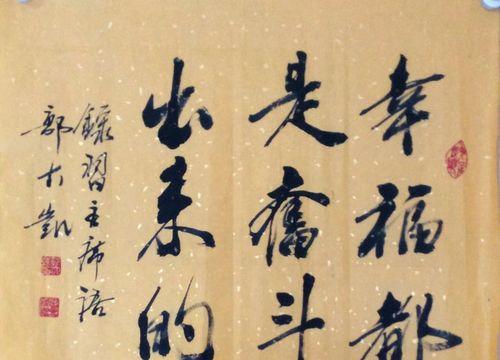 幸福都
是奮斗
出来的
錄習主席語
郭大凱